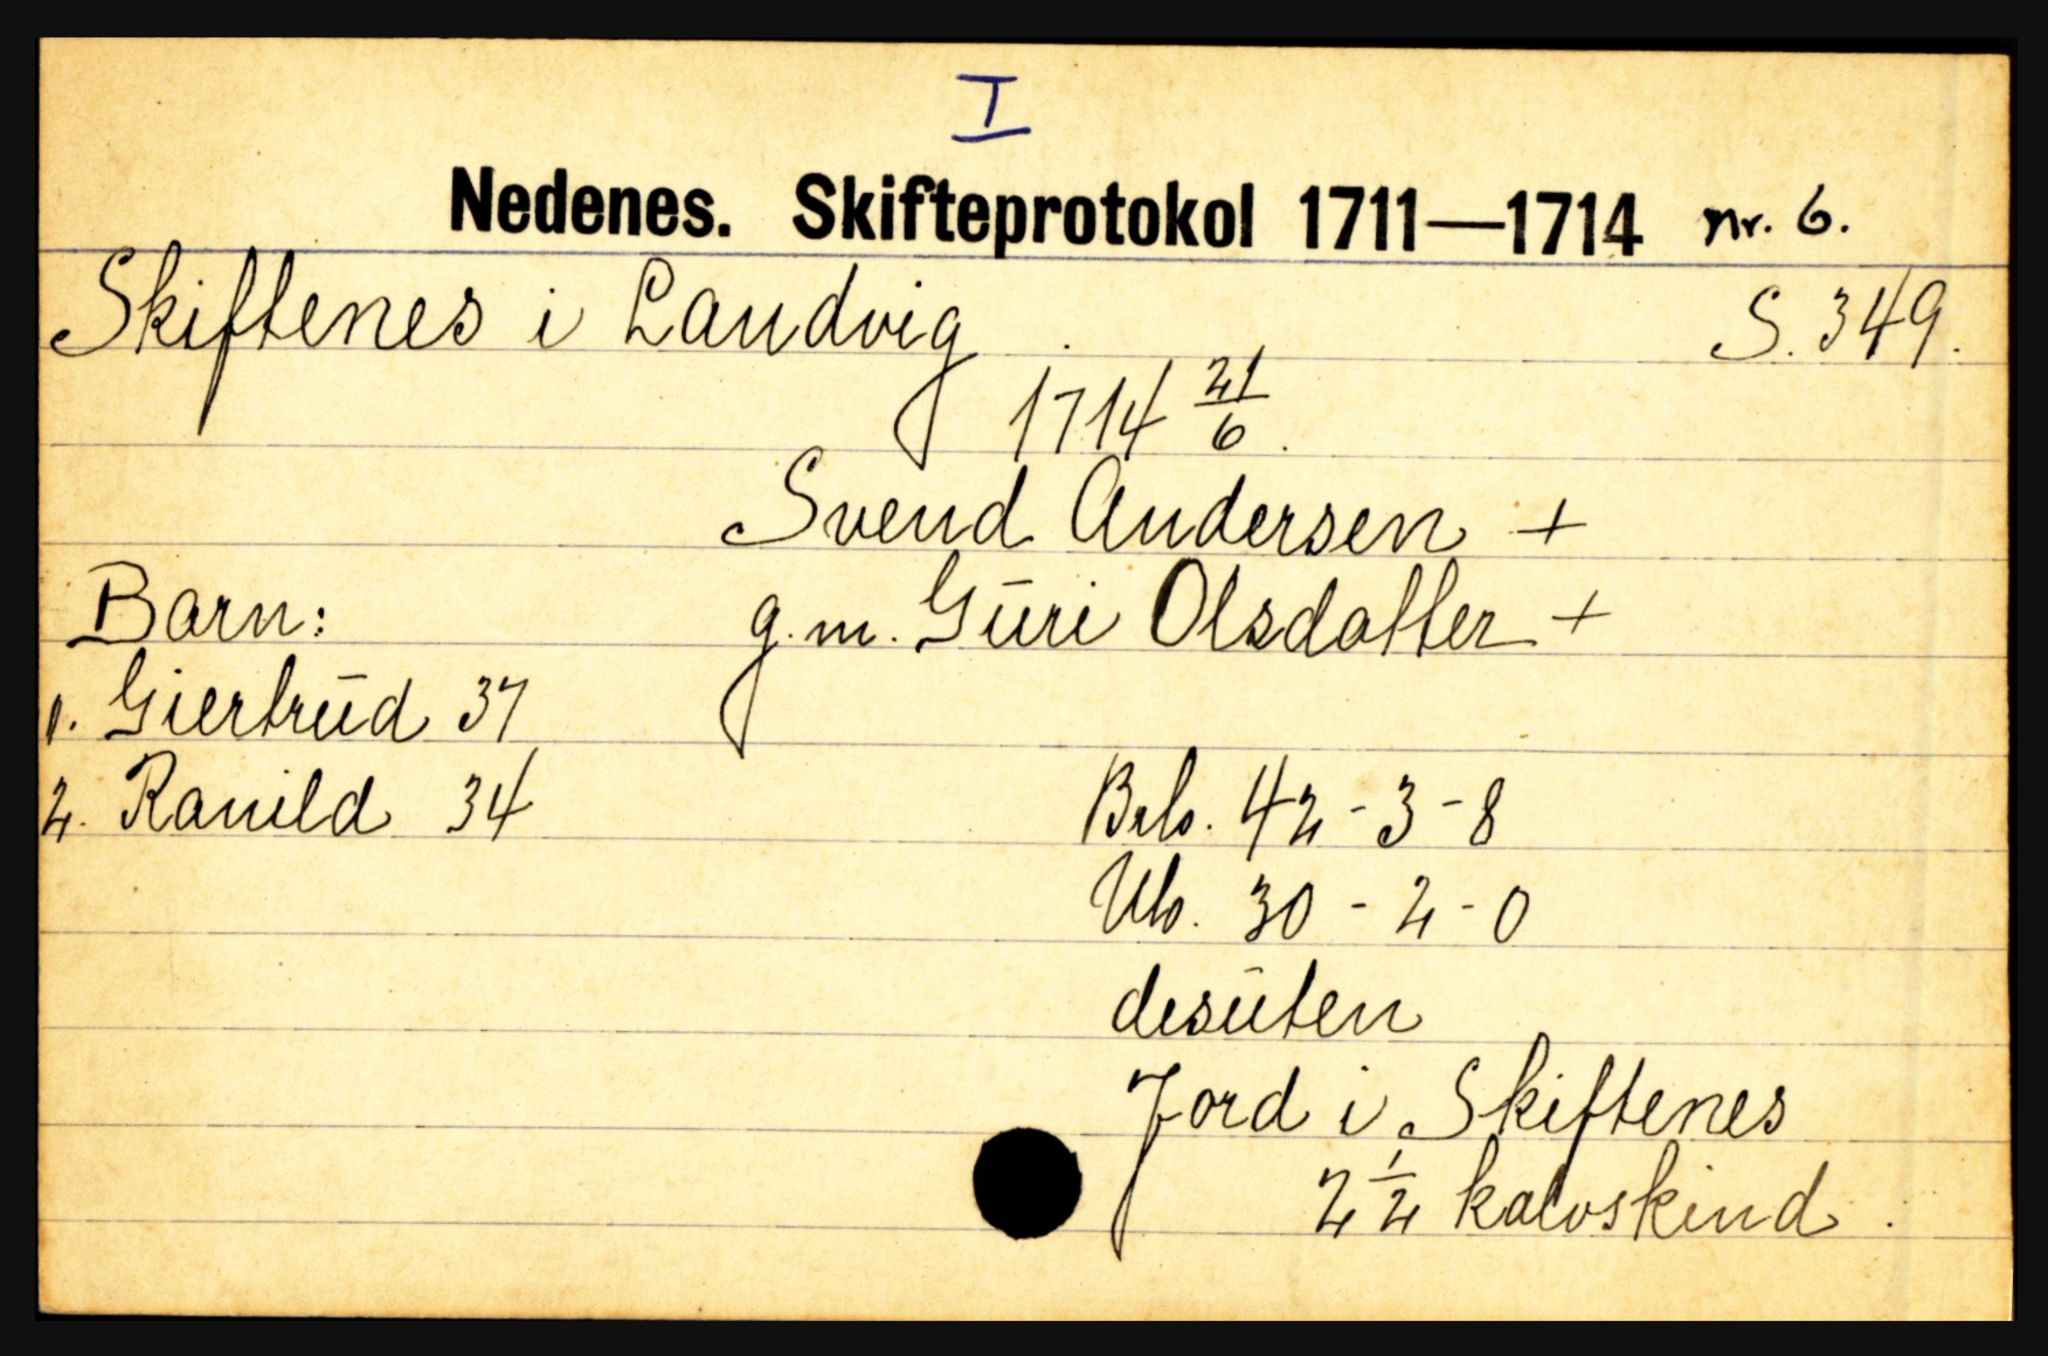 I
Nedenes. Skifteprotokol 1711—1714 nr. 6.
Skiftenes i Landvig S. 349.
1714 21/6.
Svend Andersen +
Barn: g.m. Gūri Olsdatter +
1. Giertrūd 37
2. Ranild 34 Brb. 42-3-8
Ub. 30-2-0
desūten
Jord i Skiftenes
2 1/2 kalvskind.